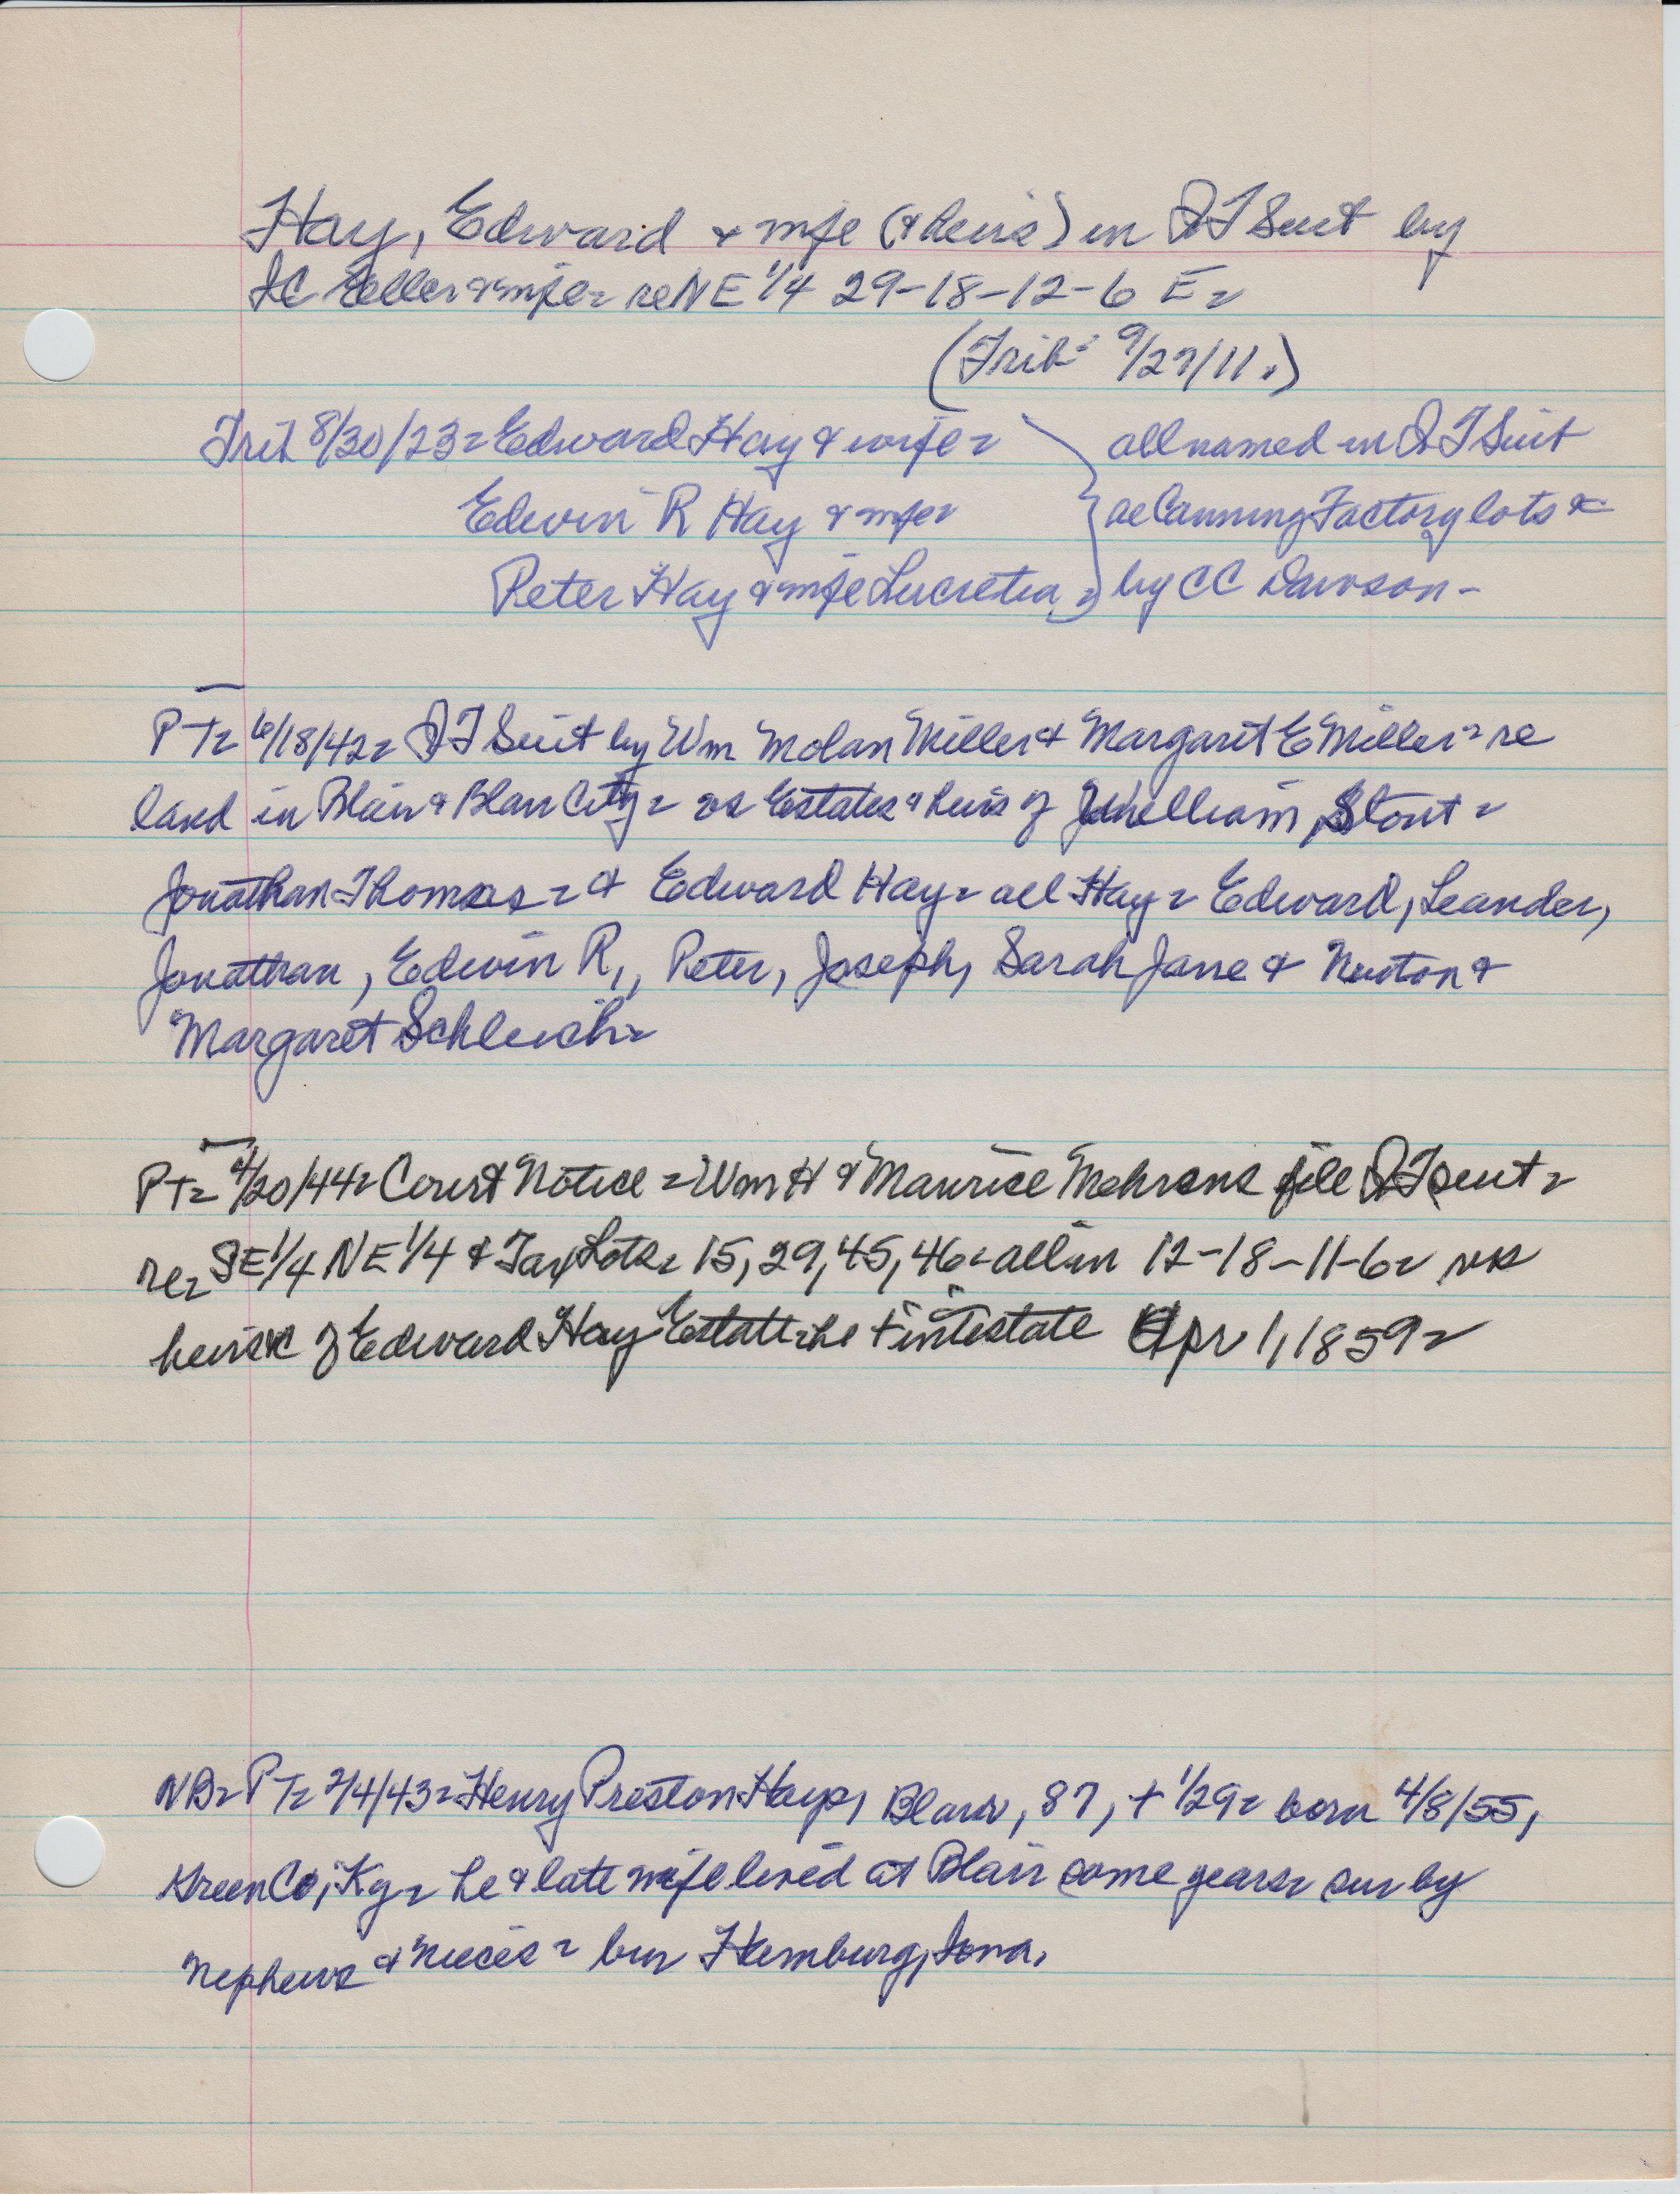 Hay, Edward & wife (& heirs) in QT Suit by
JC Eller & wife = re NE 1/4 29-18-12-6 E =
(Trib = 9/27/11.)
Trib 8/30/23 = Edward Hay & wife = all named in QT Suit
Edwin R Hay & wife = re Canning Factory lots =
Peter Hay & wife Lucretia = by CC Dawson -
PT = 6/18/42 = QT Suit by Wm Molan Miller & Margaret E Miller = re
land in Blair & Blair City = vs Estates & heirs of William Stout =
Jonathan Thomas = & Edward Hay = all Hay = Edward, Leander,
Jonathan, Edwin R., Peter, Joseph, Sarah Jane & Newton &
Margaret Schleich =
PT = 4/20/44 = Court Notice = Wm H & Maurice Mehrens file QT suit =
re = SE 1/4 NE 1/4 & Tax Lots = 15, 29, 45, 46 = all in 12-18-11-6 = vs
heirs of Edward Hay Estate = he + intestate Apr 1, 1859 =
NB = PT = 2/4/43 = Henry Preston Hays, Blair, 87, + 1/29 = born 4/8/55,
Green Co, Ky = he & late wife lived at Blair some years = sur by
nephews & nieces = bur Hamburg, Iowa.